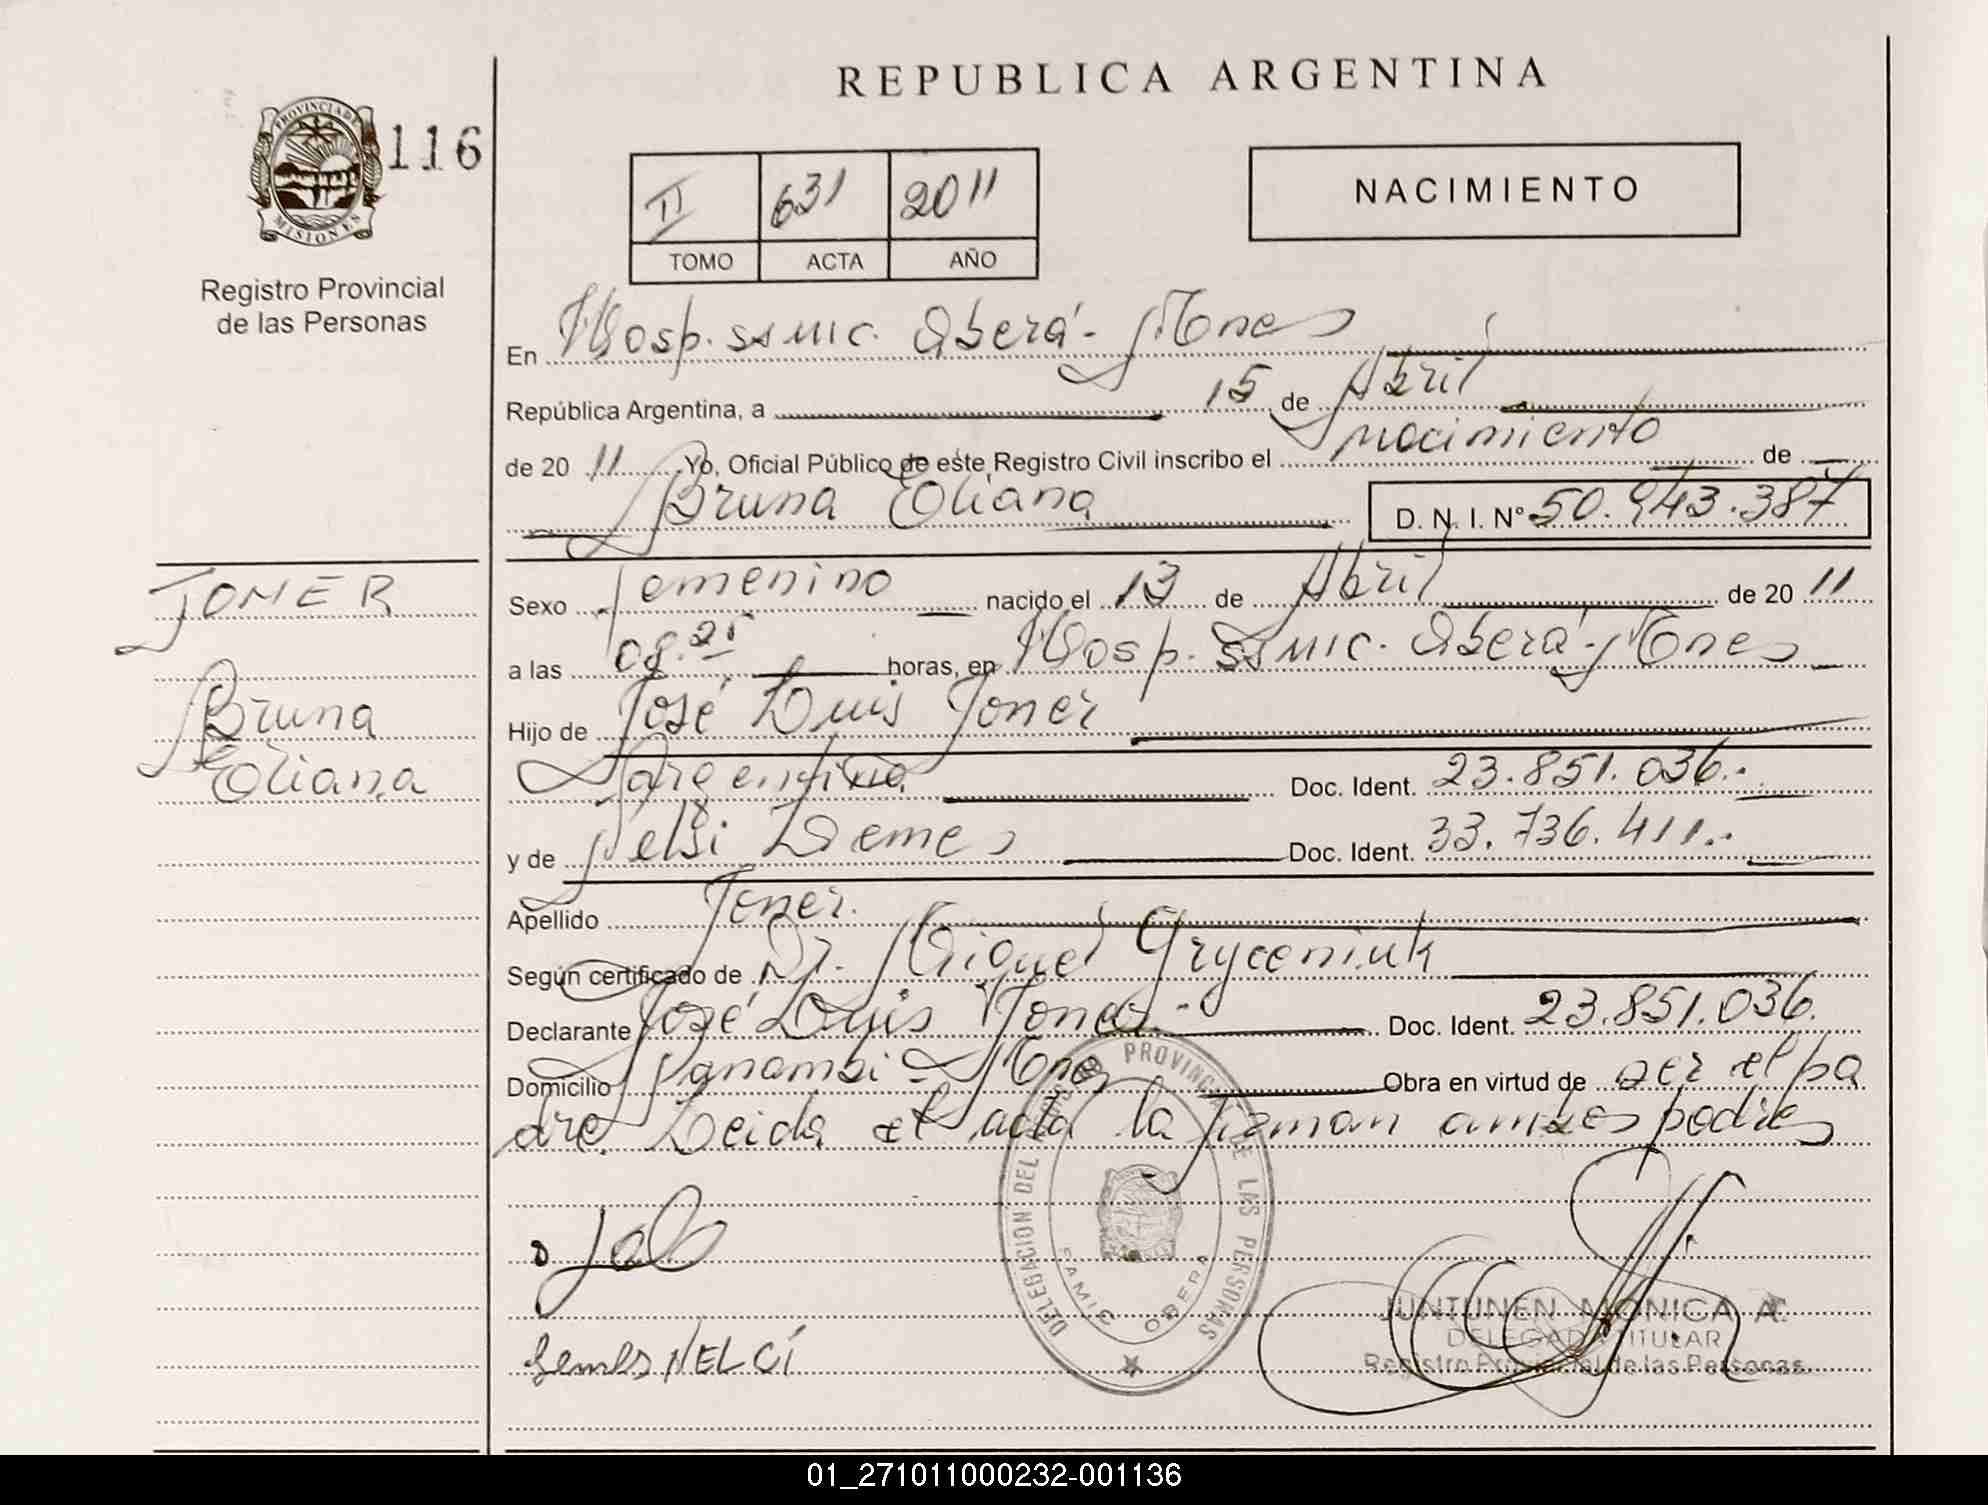 REPUBLICA ARGENTINA
PROVINCIA DE MISIONES
116
Registro Provincial
de las Personas
II 631 2011
TOMO ACTA AÑO
NACIMIENTO
En Hosp. SSMIC. Oberá - Mones
República Argentina, a 15 de Abril
de 20 11 Yo, Oficial Público de este Registro Civil inscribo el nacimiento de
Bruna Eliana D. N. I. N° 50.943.387
JONER
Bruna
Eliana
Sexo femenino nacido el 13 de Abril de 20 11
a las 08.25 horas, en Hosp. SSMIC. Oberá - Mones
Hijo de José Luis Joner
Argentina Doc. Ident. 23.851.036.-
y de Nelsi Lemes Doc. Ident. 33.736.411.-
Apellido Joner.
Según certificado de Dr. Miguel Gryceniuk
Declarante José Luis Joner.- Doc. Ident. 23.851.036.
Domicilio Panambi - Mones Obra en virtud de ser el pa
dre. Leida el acta la firman ambos padres
DELEGACION DEL REGISTRO PROVINCIAL DE LAS PERSONAS
FAMIS OBERA
Lemes NELCI
JUNTUNEN MONICA A.
DELEGADA TITULAR
Registro Provincial de las Personas
01_271011000232-001136